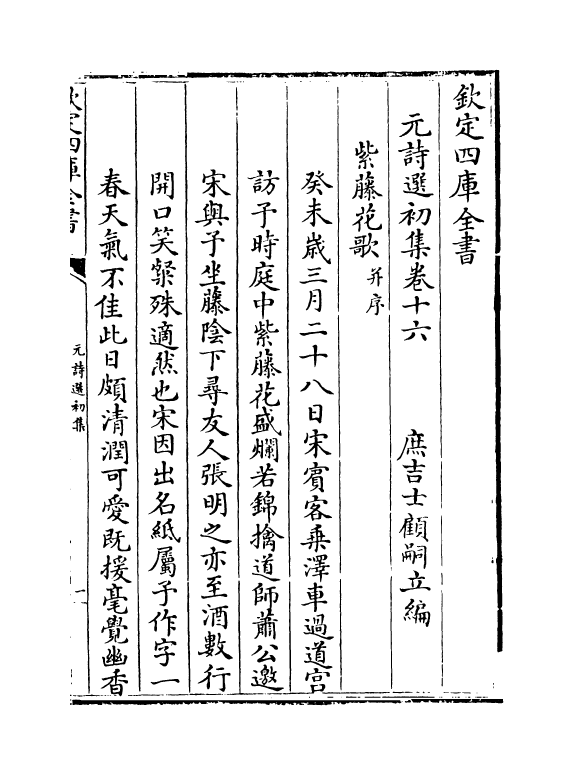 欽定四庫全書
元詩選初集卷十六　庶吉士顧嗣立編
紫藤花歌 并序
癸未嵗三月二十八日宋賓客乗澤車過道宫
訪予時庭中紫藤花盛爛若錦擒道師蕭公邀
宋與予坐藤陰下尋友人張明之亦至酒數行
開口笑粲殊適然也宋因出名紙屬予作字一
春天氣不佳此日頗清潤可愛既援毫覺幽香
欽定四庫全書
元詩選初集
一